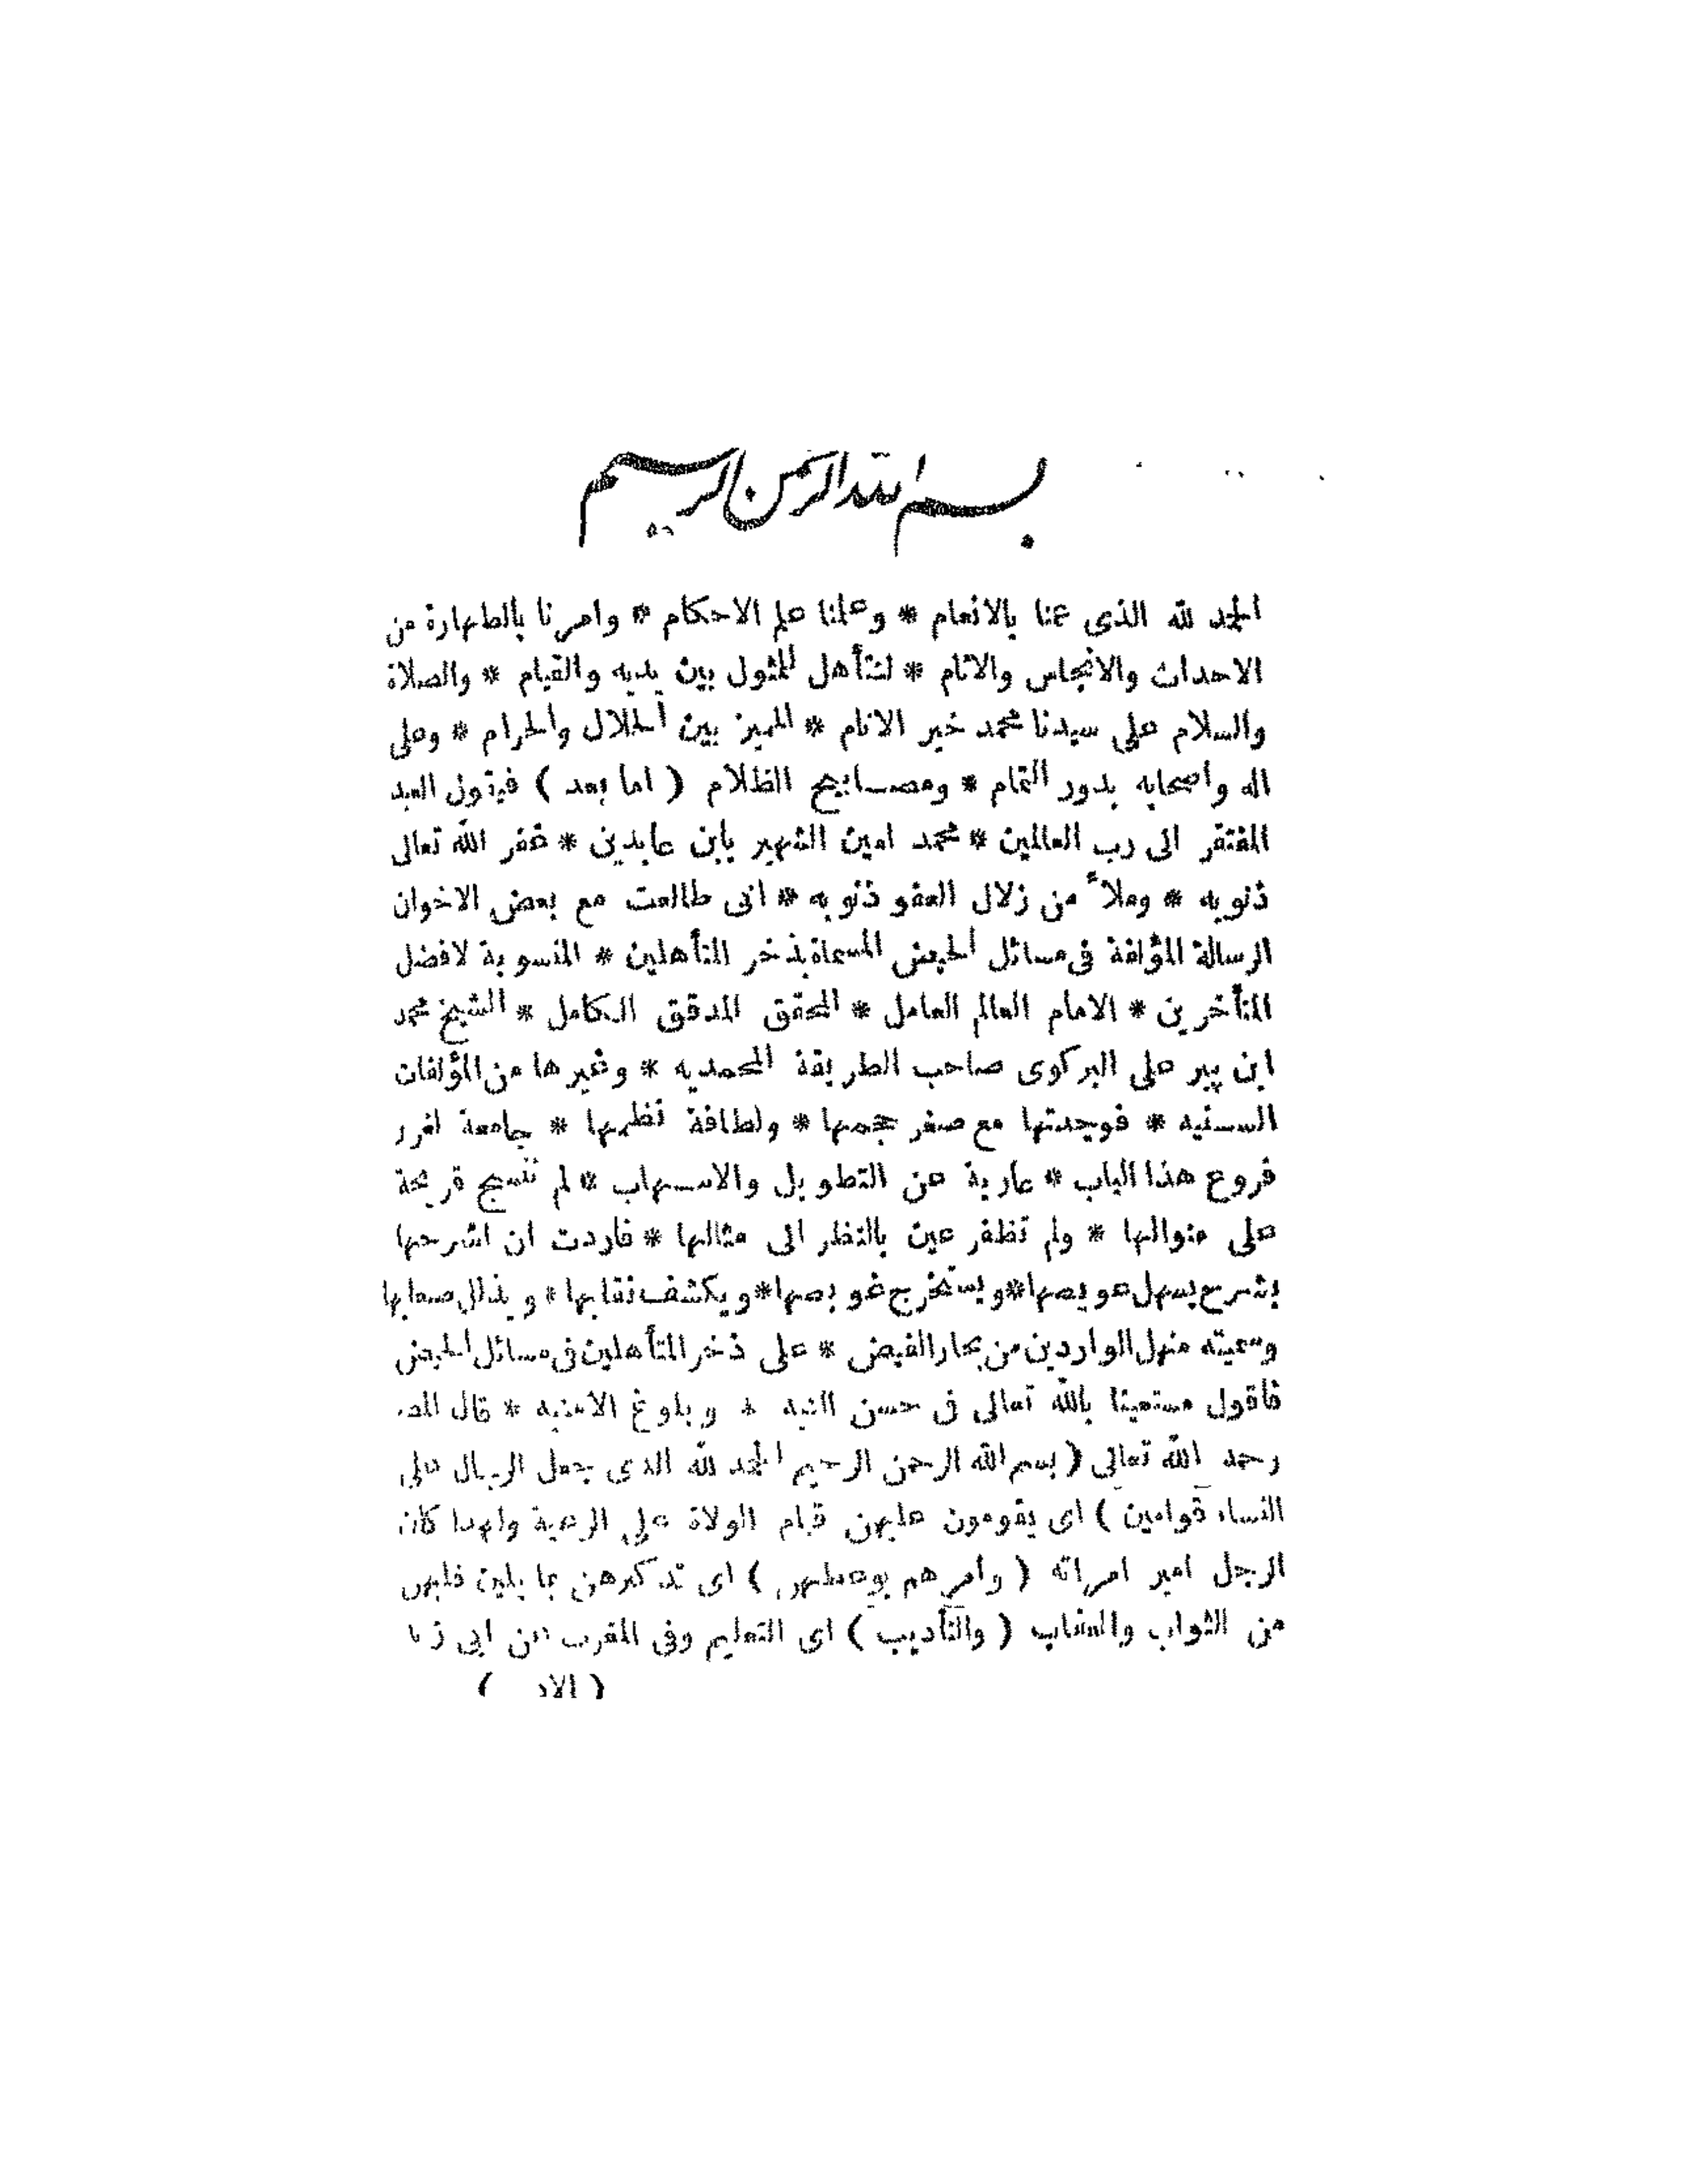 بسم الله الرحمن الرحيم
الحمد لله الذى عمنا بالانعام * وعلمنا علم الاحكام * وامرنا بالطهارة من
الاحداث والانجاس والاثام * لنتأهل للمثول بين يديه والقيام * والصلاة
والسلام على سيدنا محمد خير الانام * المميز بين الحلال والحرام * وعلى
اله واصحابه بدور التمام * ومصابيح الظلام ( اما بعد ) فيقول العبد
المفتقر الى رب العالمين * محمد امين الشهير بابن عابدين * غفر الله تعالى
ذنوبه * وملأ من زلال العفو ذنوبه * انى طالعت مع بعض الاخوان
الرسالة المؤلفة فى مسائل الحيض المسماة بذخر المتأهلين * المنسوبة لافضل
المتأخرين * الامام العالم العامل * المحقق المدقق الكامل * الشيخ محمد
ابن پير على البركوى صاحب الطريقة المحمديه * وغيرها من المؤلفات
السنيه * فوجدتها مع صغر حجمها * ولطافة نظمها * جامعة لغرر
فروع هذا الباب * عارية عن التطويل والاسهاب * لم تنسج قريحة
على منوالها * ولم تظفر عين بالنظر الى مثالها * فاردت ان اشرحها
بشرح يسهل عويصها * ويستخرج غويصها * ويكشف نقابها * ويذلل صعابها
وسميته منهل الواردين من بحار الفيض * على ذخر المتأهلين فى مسائل الحيض
فاقول مستعينا بالله تعالى فى حسن النيه * وبلوغ الامنيه * قال المص
رحمه الله تعالى ( بسم الله الرحمن الرحيم الحمد لله الذى جعل الرجال على
النساء قوامين ) اى يقومون عليهن قيام الولاة على الرعية ولهذا كان
الرجل امير امراته ( وأمرهم بوعظهن ) اى تذكيرهن بما يلين قلبهن
من الثواب والعقاب ( والتأديب ) اى التعليم وفى المغرب عن ابى